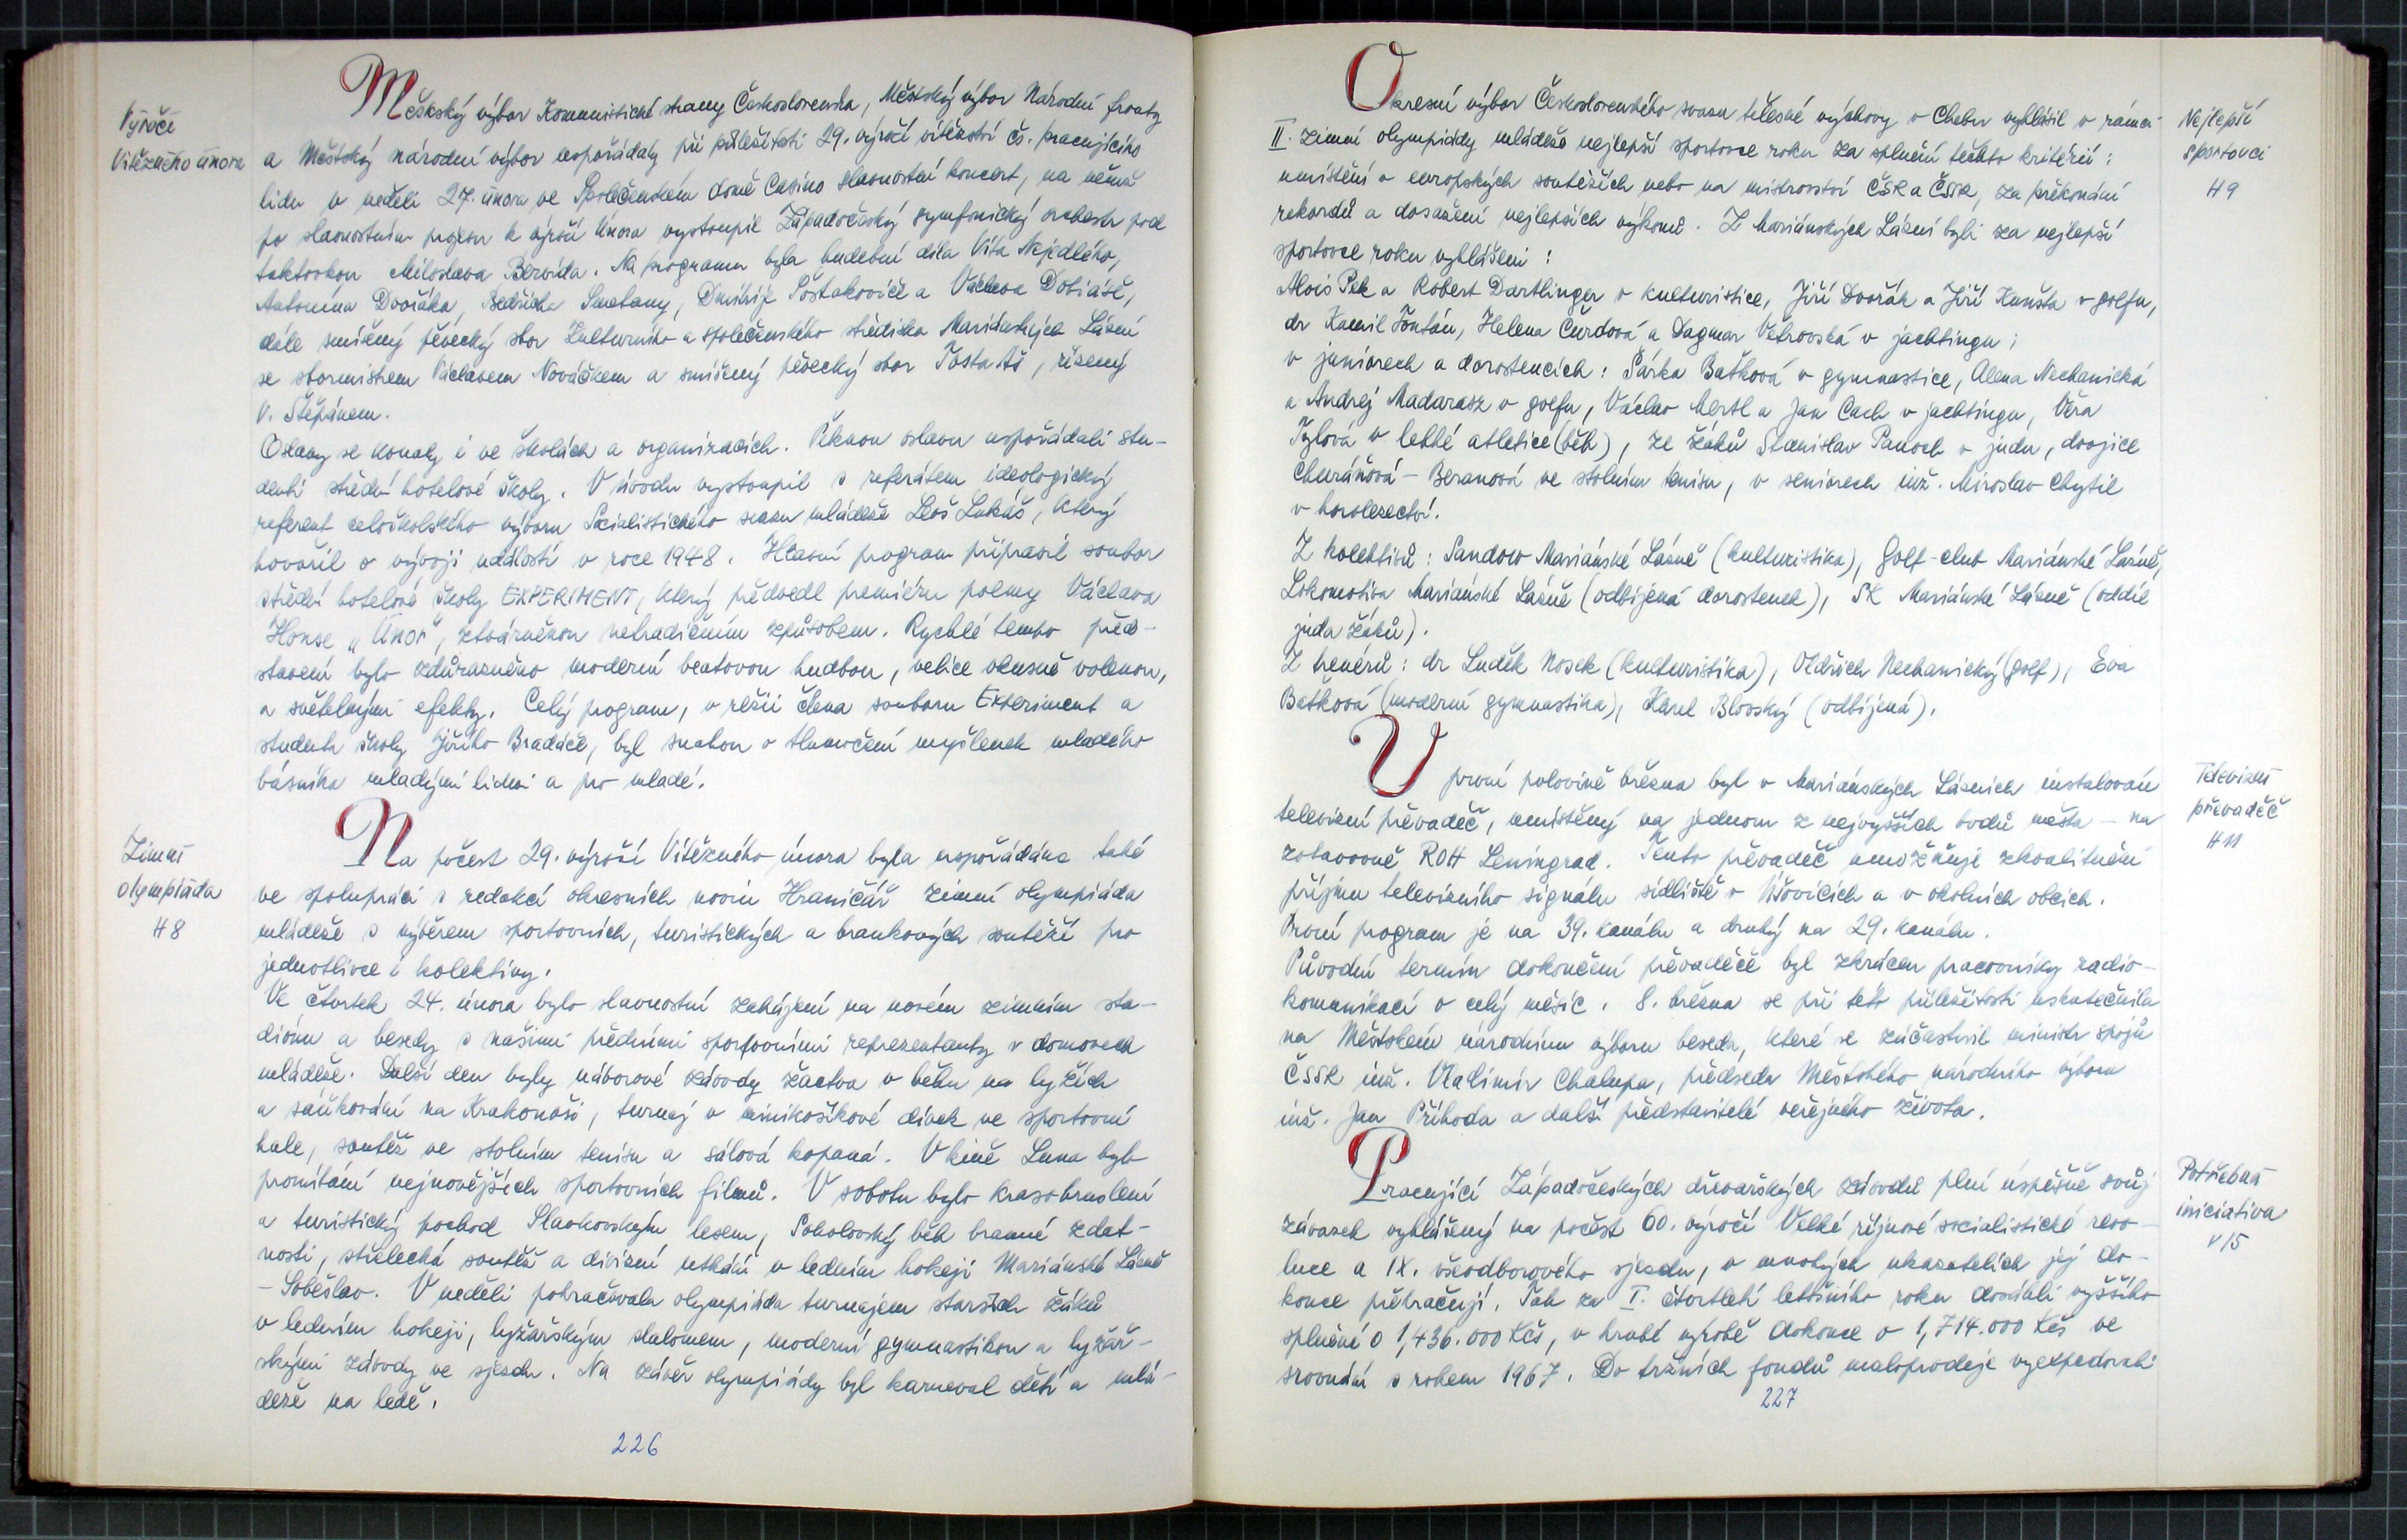 Výročí
Vítězného února
Městský výbor Komunistické strany Československa, Městský výbor Národní fronty
a Městský národní výbor uspořádaly při příležitosti 29. výročí vítězství čs. pracujícího
lidu v neděli 27. února ve Společenském domě Casino slavnostní koncert, na němž
po slavnostním projevu k výročí Února vystoupil Západočeský symfonický orchestr pod
taktovkou Miloslava Bervída. Na programu byla hudební díla Víta Nejedlého,
Antonína Dvořáka, Bedřicha Smetany, Dmitrije Šostakoviče a Václava Dobiáše,
dále smíšený pěvecký sbor Kulturního a společenského střediska Mariánských Lázní
se sbormistrem Václavem Nováčkem a smíšený pěvecký sbor Tosta Aš, řízený
V. Štěpánem.
Oslavy se konaly i ve školách a organizacích. Pěknou oslavu uspořádali stu-
denti střední hotelové školy. V úvodu vystoupil s referátem ideologický
referent celoškolského výboru Socialistického svazu mládeže Leoš Lukáš, který
hovořil o vývoji událostí v roce 1948. Hlavní program připravil soubor
střední hotelové školy EXPERIMENT, který předvedl premiéru poemy Václava
Honse „Únor", ztvárněnou netradičním způsobem. Rychlé tempo před-
stavení bylo zdůrazněno moderní beatovou hudbou, velice vkusně volenou,
a světelnými efekty. Celý program, v režii člena souboru Experiment a
studenta školy Jiřího Bradáče, byl snahou o tlumočení myšlenek mladého
básníka mladými lidmi a pro mladé.
Zimní
olympiáda
H8
Na počest 29. výročí Vítězného února byla uspořádána také
ve spolupráci s redakcí okresních novin Hraničář zimní olympiáda
mládeže s výběrem sportovních, turistických a brankových soutěží pro
jednotlivce i kolektivy.
Ve čtvrtek 24. února bylo slavnostní zahájení na novém zimním sta-
diónu a besedy s našimi předními sportovními reprezentanty v domovech
mládeže. Další den byly náborové závody žactva v běhu na lyžích
a sáňkování na Krakonoši, turnaj v minikošíkové dívek ve sportovní
hale, soutěž ve stolním tenisu a sálová kopaná. V kině Luna bylo
promítání nejnovějších sportovních filmů. V sobotu bylo krasobruslení
a turistický pochod Slavkovským lesem, Sokolovský běh branné zdat-
nosti, střelecká soutěž a divizní utkání v ledním hokeji Mariánské Lázně
- Soběslav. V neděli pokračovala olympiáda turnajem starších žáků
v ledním hokeji, lyžařským slalomem, moderní gymnastikou a lyžař-
skými závody ve sjezdu. Na závěr olympiády byl karneval dětí a mlá-
deže na ledě.
226
Okresní výbor Československého svazu tělesné výchovy v Chebu vyhlásil v rámci
II. zimní olympiády mládeže nejlepší sportovce roku za splnění těchto kritérií:
umístění v evropských soutěžích nebo na mistrovství ČSR a ČSSR, za překonání
rekordů a dosažení nejlepších výkonů. Z Mariánských Lázní byli za nejlepší
sportovce roku vyhlášeni:
Alois Pek a Robert Dartlinger v kulturistice, Jiří Dvořák a Jiří Kunšta v golfu,
dr Kamil Fontán, Helena Čurdová a Dagmar Větrovská v jachtingu;
v juniorech a dorostencích: Šárka Baťková v gymnastice, Alena Nechanická
a Andrej Madarasz v golfu, Václav Mertl a Jan Cach v jachtingu, Věra
Tylová v lehké atletice (běh), ze žáků Stanislav Panoch v judu, dvojice
Churáňová - Beranová ve stolním tenisu, v seniorech inž. Miroslav Chytil
v horolezectví.
Z kolektivů: Sandow Mariánské Lázně (kulturistika), Golf-club Mariánské Lázně,
Lokomotiva Mariánské Lázně (odbíjená dorostenek), SK Mariánské Lázně (oddíl
juda žáků).
Z trenérů: dr Luděk Nosek (kulturistika), Oldřich Nechanický (golf), Eva
Baťková (moderní gymnastika), Karel Blovský (odbíjená).
Nejlepší
sportovci
H9
V první polovině března byl v Mariánských Lázních instalován
televizní převaděč, umístěný na jednom z nejvyšších bodů města - na
zotavovně ROH Leningrad. Tento převaděč umožňuje zkvalitnění
příjmu televizního signálu sídliště v Úšovicích a v okolních obcích.
První program je na 39. kanálu a druhý na 29. kanálu.
Původní termín dokončení převaděče byl zkrácen pracovníky radio-
komunikací o celý měsíc. 8. března se při této příležitosti uskutečnila
na Městském národním výboru beseda, které se zúčastnil ministr spojů
ČSSR inž. Vladimír Chalupa, předseda Městského národního výboru
inž. Jan Příhoda a další představitelé veřejného života.
Televizní
převaděč
H11
Pracující Západočeských dřevařských závodů plní úspěšně svůj
závazek vyhlášený na počest 60. výročí Velké říjnové socialistické revo-
luce a IX. všeodborového sjezdu, v mnohých ukazatelích jej do-
konce překračují. Tak za I. čtvrtletí letošního roku dosáhli vyššího
splnění o 1,436.000 Kčs, v hrubé výrobě dokonce o 1,714.000 Kčs ve
srovnání s rokem 1967. Do tržních fondů maloprodeje vyexpedovali
Potřebná
iniciativa
V/5
227